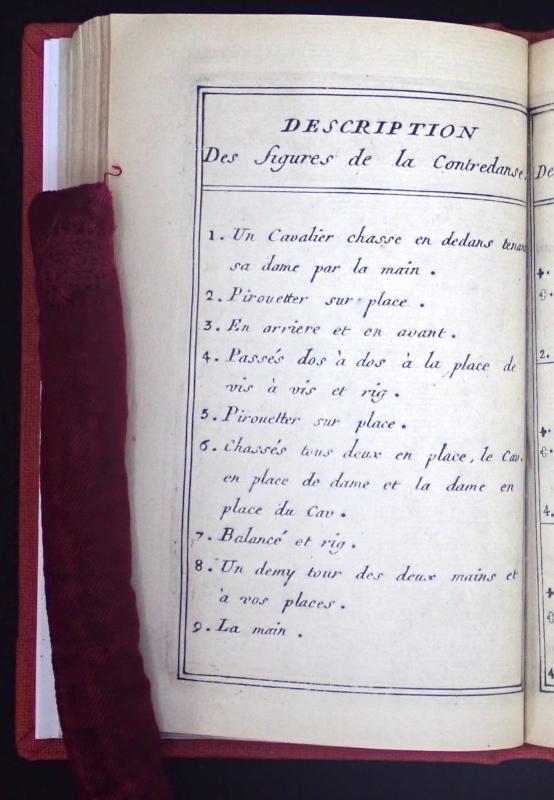 DESCRIPTION
Des figures de la Contredanse.
1. Un Cavalier chasse en dedans tenan
sa dame par la main.
2. Pirouetter sur place.
3. En arriere et en avant.
4. Passés dos à dos à la place de
vis à vis et rig.
5. Pirouetter sur place.
6. Chassés tous deux en place, le Cav.
en place de dame et la dame en
place du Cav.
7. Balancé et rig.
8. Un demy tour des deux mains et
à vos places.
9. La main.
De
2.
4.
4